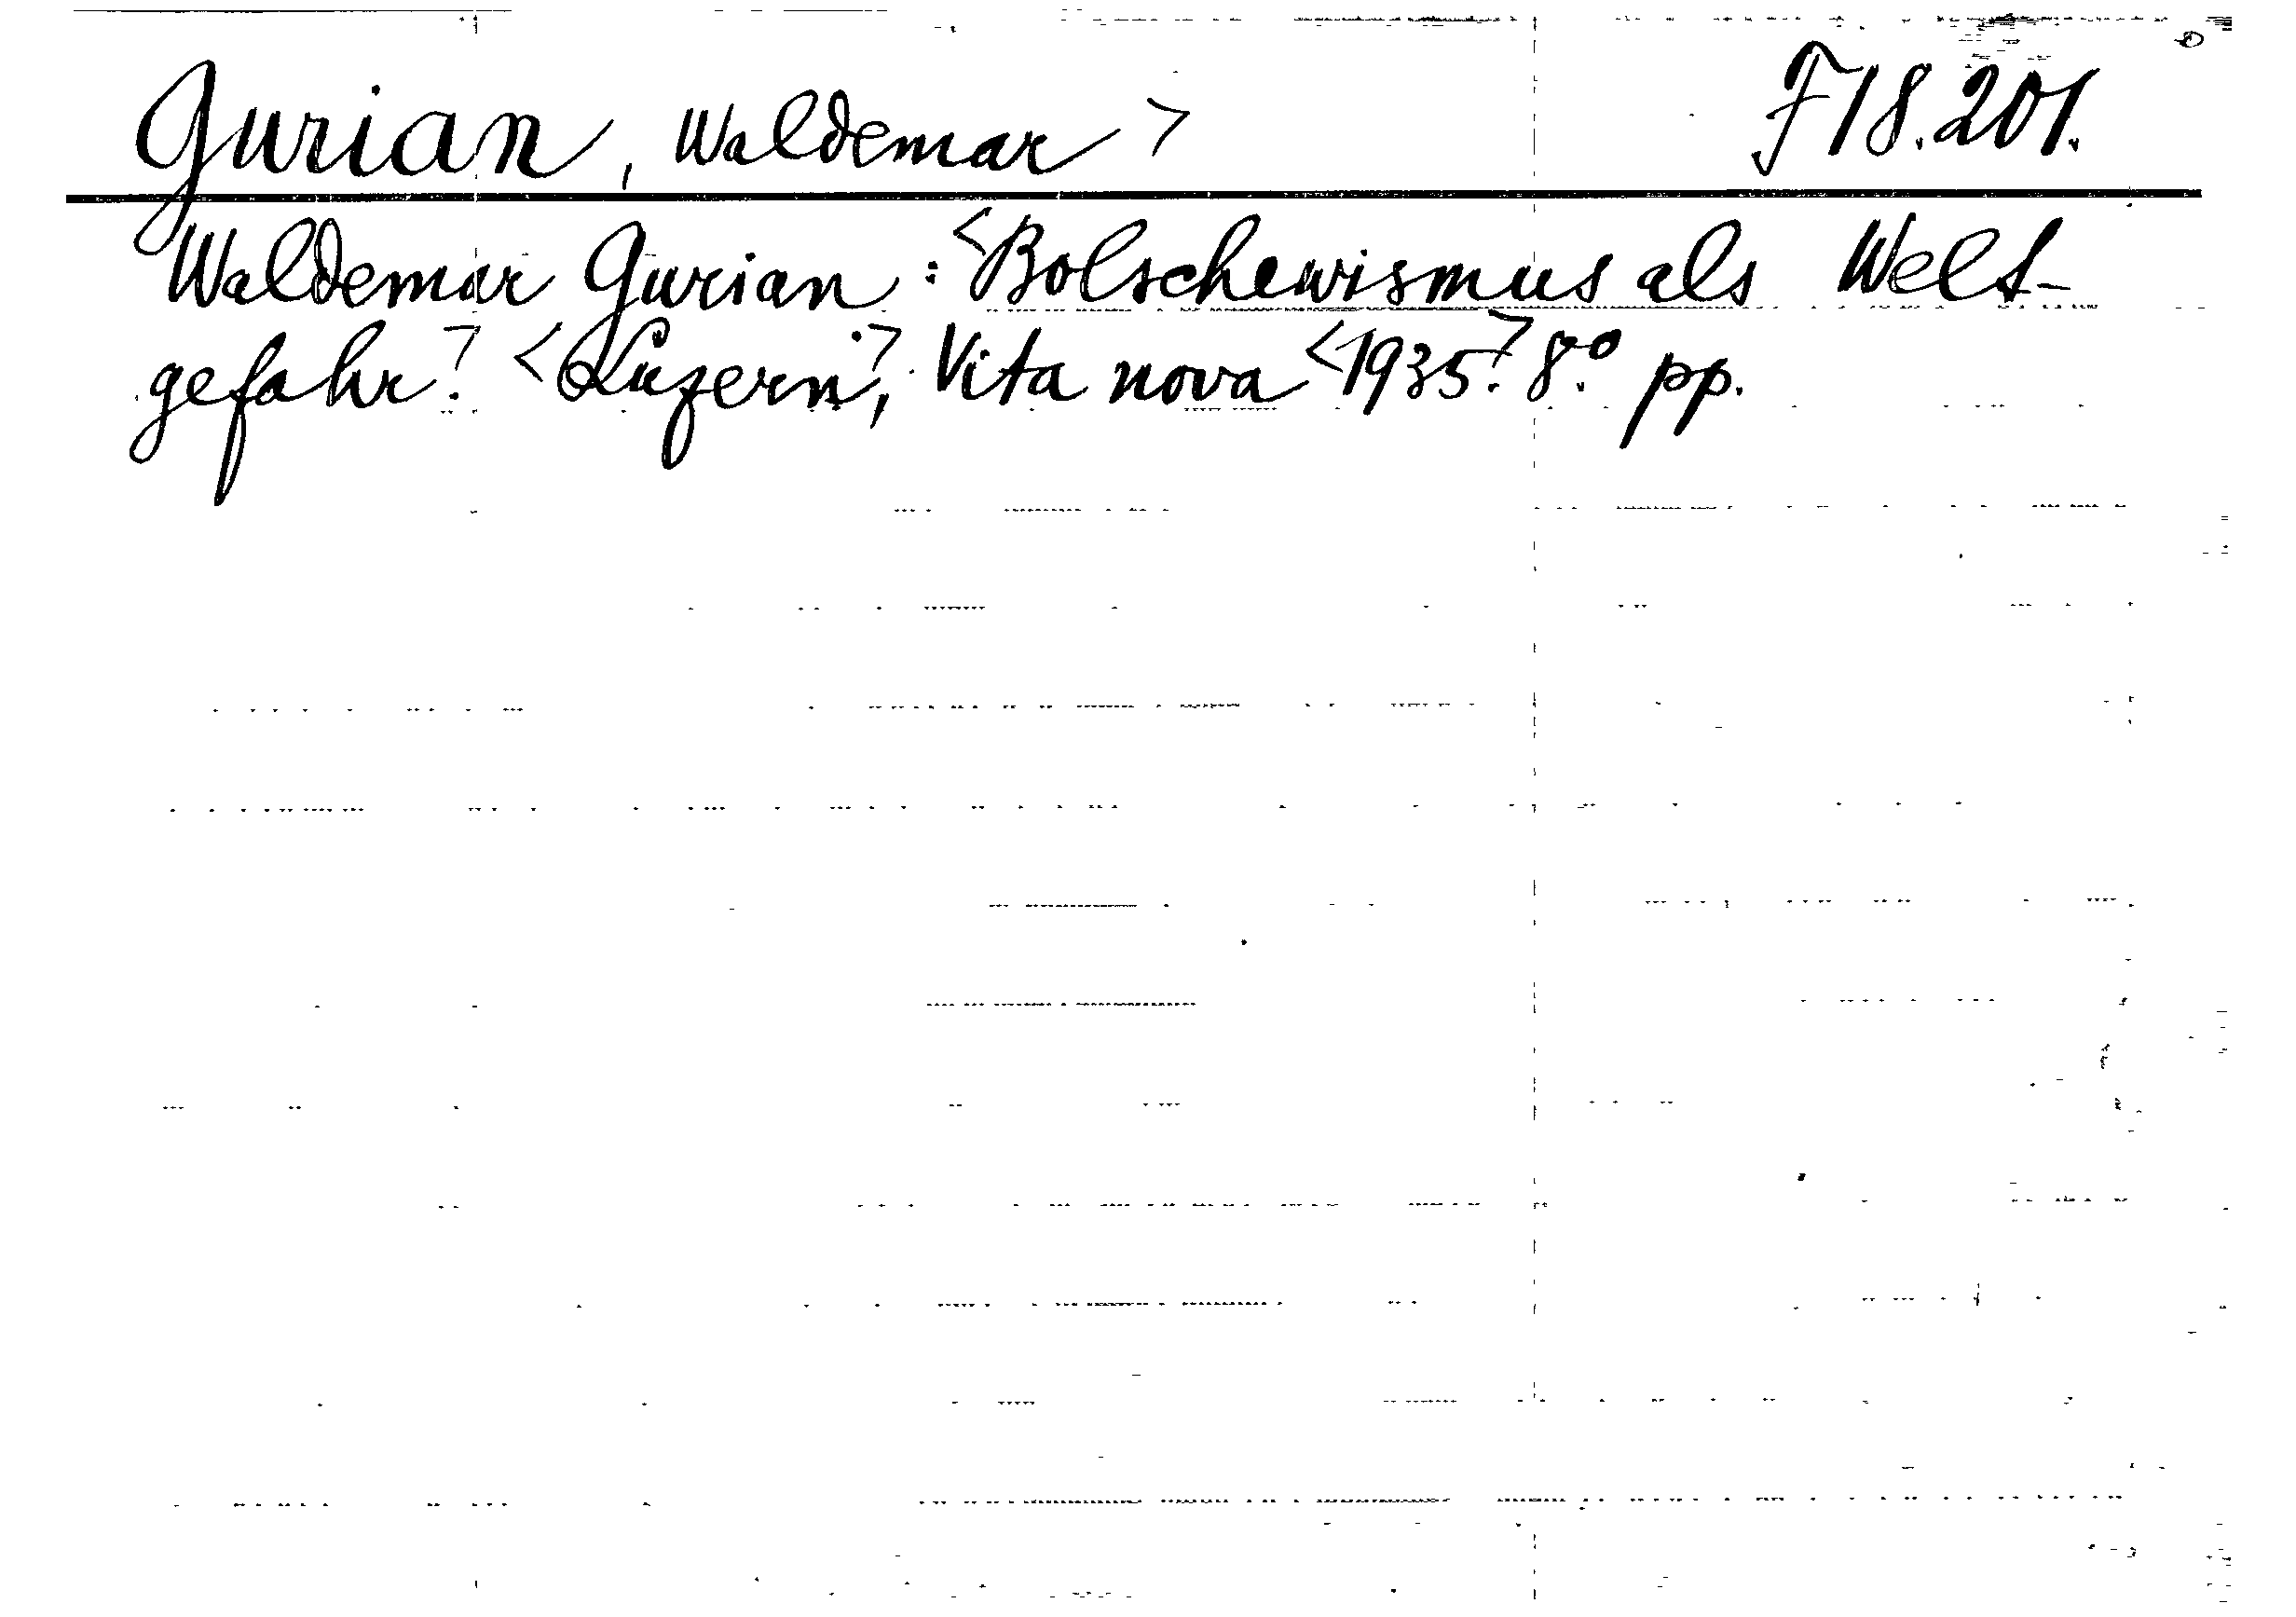 Gurian, Waldemar > F18.201.
Waldemar Gurian: <Bolschewismus als Welt-
gefahr.> <Luzern:>, Vita nova <1935.> 8.° pp.